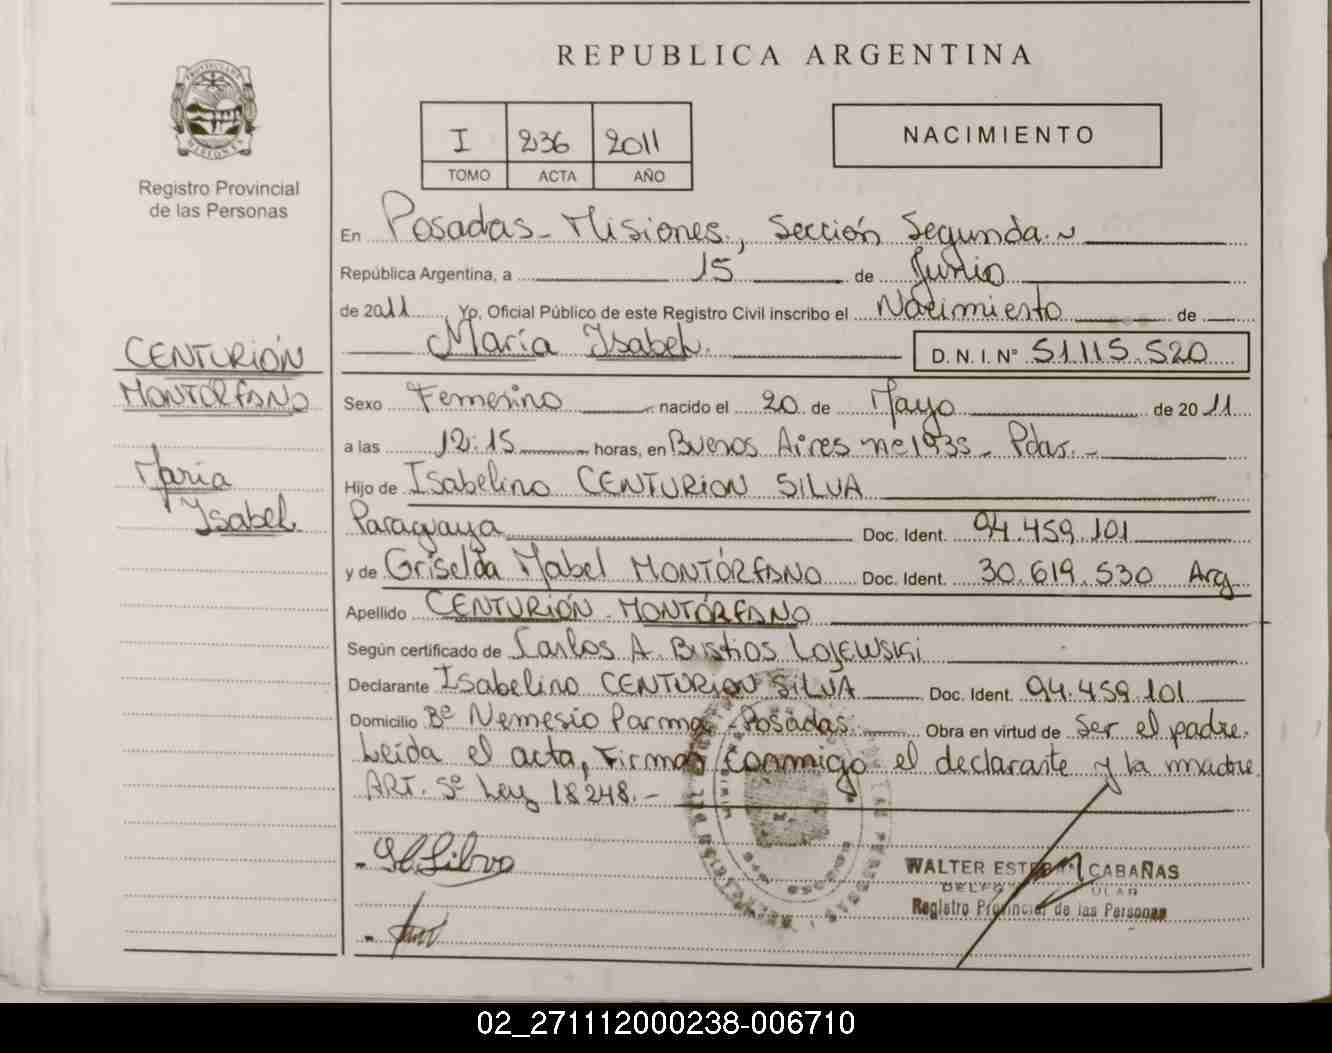 REPUBLICA ARGENTINA
PROVINCIA DE MISIONES
Registro Provincial
de las Personas
I 236 2011
TOMO ACTA AÑO
NACIMIENTO
En Posadas - Misiones, Sección Segunda. ~
República Argentina, a 15 de Junio
de 2011 Yo, Oficial Público de este Registro Civil inscribo el Nacimiento de
María Isabel. D. N. I. Nº 51.115.520
CENTURIÓN
MONTÓRFANO
María
Isabel.
Sexo Femenino nacido el 20 de Mayo de 2011
a las 12:15 horas, en Buenos Aires nº 1935 - Pdas. -
Hijo de Isabelino CENTURION SILVA
Paraguaya Doc. Ident. 94.459.101
y de Griselda Mabel MONTÓRFANO Doc. Ident. 30.619.530 Arg
Apellido CENTURIÓN MONTÓRFANO
Según certificado de Carlos A. Bustos Lojewski
Declarante Isabelino CENTURION SILVA Doc. Ident. 94.459.101
Domicilio Bº Nemesio Parma - Posadas. Obra en virtud de Ser el padre.
Leída el acta, Firman conmigo el declarante y la madre
ART. 5º Ley 18248. -
WALTER ESTEBAN CABAÑAS
Registro Provincial de las Personas
02_271112000238-006710